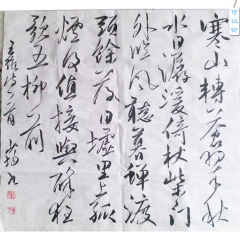 寒山轉蒼翠秋
水日潺湲倚杖柴門
外臨風聽暮蟬渡
頭餘落日墟里上孤
煙復值接輿醉狂
歌五柳前
王維詩一首